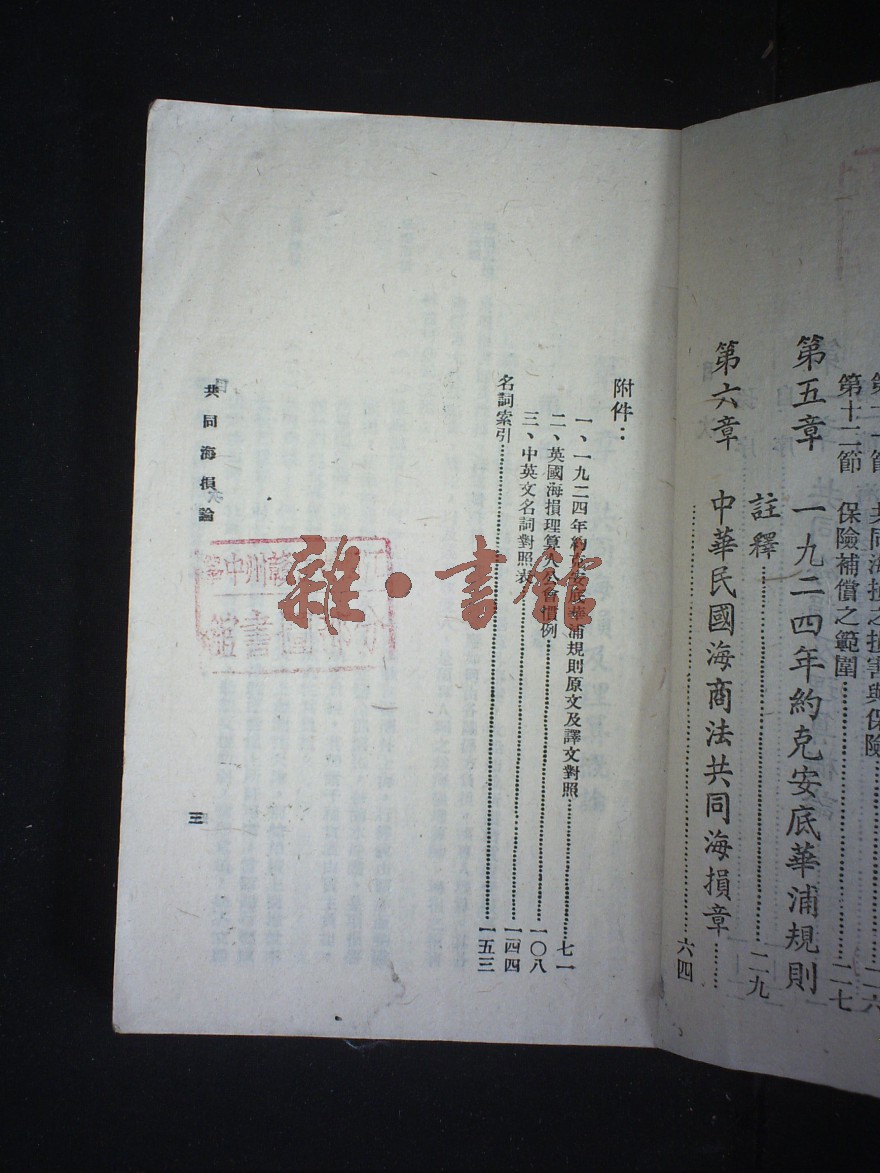 共同海損之損害與保險……二六
第十二節 保險補償之範圍……二七
第五章 一九二四年約克安底華浦規則
註釋……二九
第六章 中華民國海商法共同海損章……
……六四
附件：
一、一九二四年約克安底華浦規則原文及譯文對照……七一
二、英國海損理算人公會慣例……一〇八
三、中英文名詞對照表……一四四
名詞索引……一五三
共同海損論
三
雜·書館